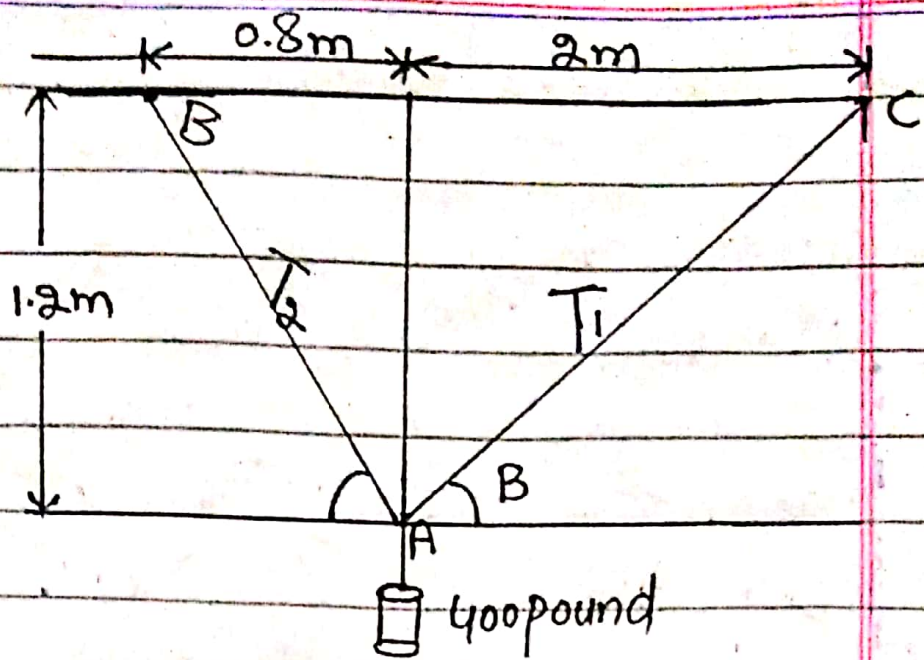 0.8m 2m
B C
1.2m
T2 T1
B
A
400pound